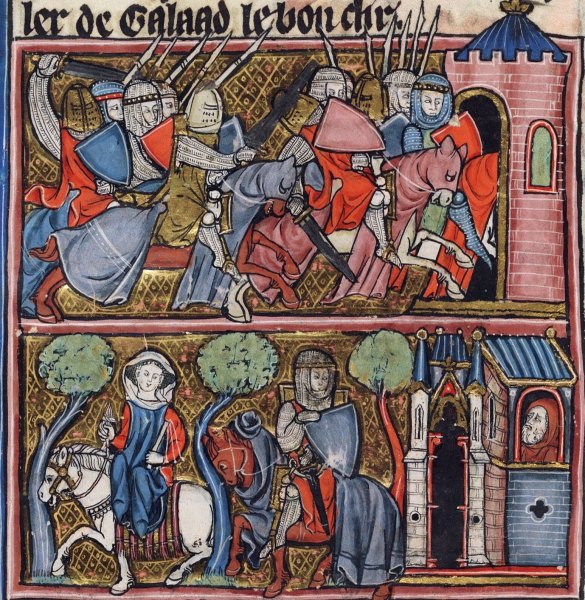 ler de Galaad le bon chr